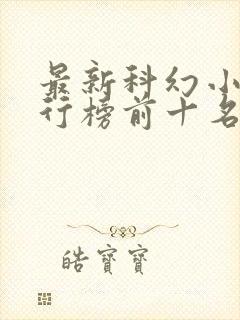 最新科幻小
行榜前十名
皓寶寶